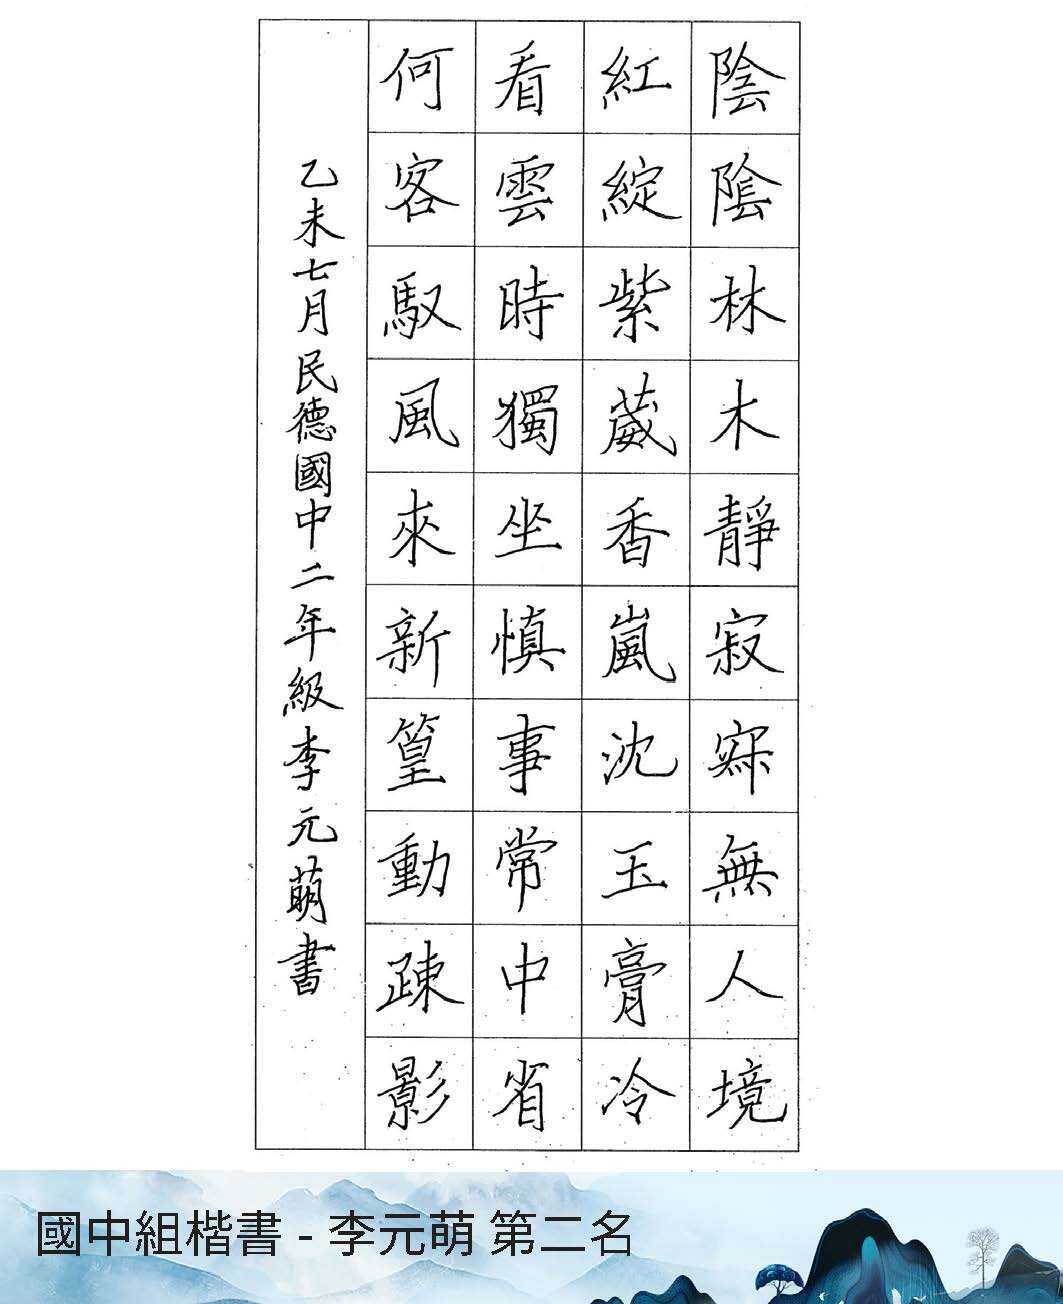 陰陰林木靜寂寀無人境
紅綻紫葳香嵐沈玉膏冷
看雲時獨坐慎事常中省
何客馭風來新篁動疎影
乙未七月民德國中二年級李元萌書
國中組楷書 - 李元萌 第二名